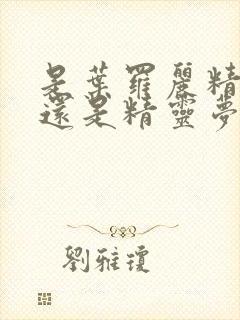 是葉羅麗精
還是精靈夢
劉雅瓊